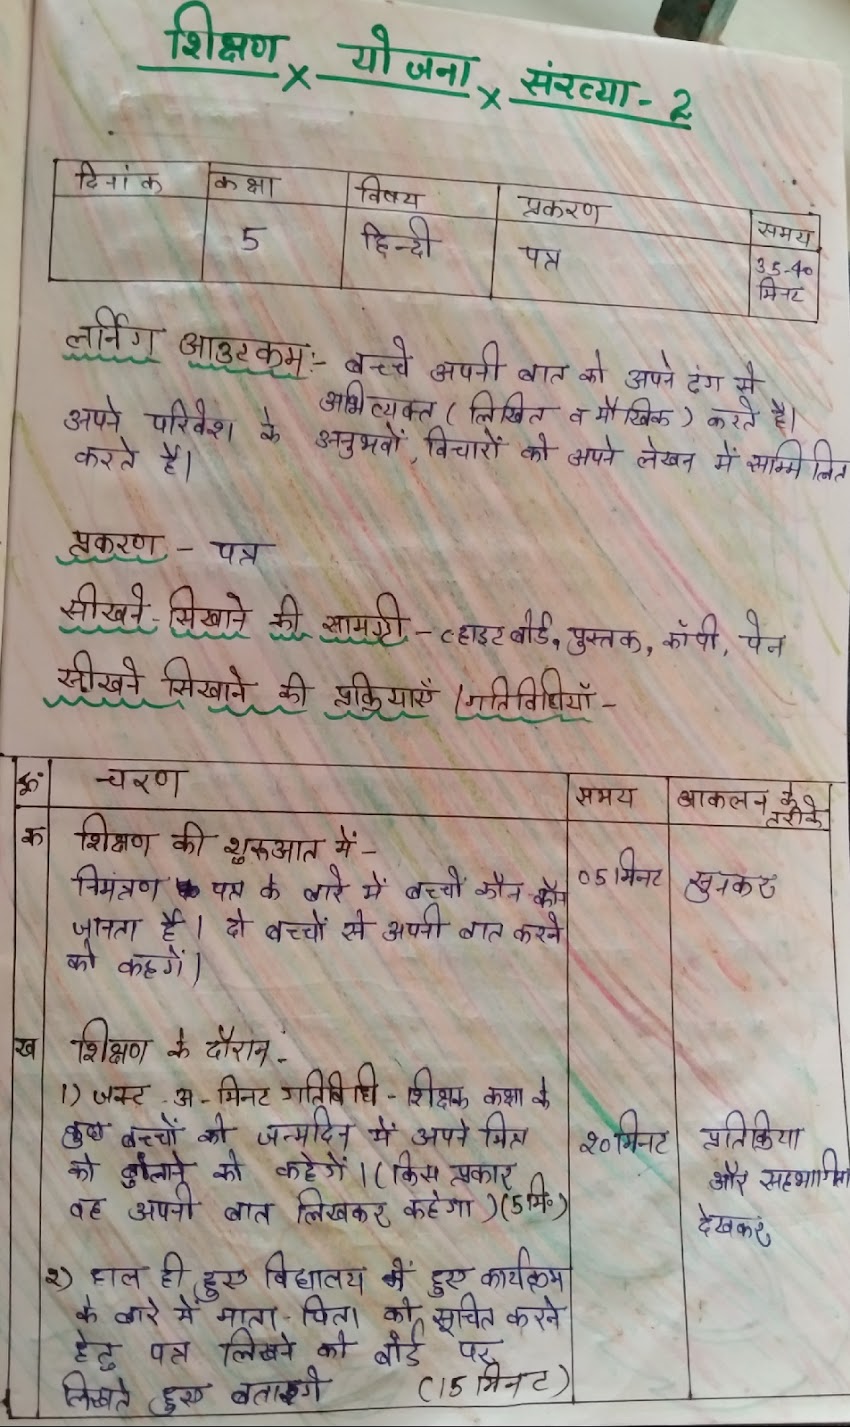 शिक्षण x योजना x संख्या - 2
दिनांक कक्षा विषय प्रकरण समय
5 हिन्दी पत्र 35-40 मिनट
लर्निग आउटकम:- बच्चे अपनी बात को अपने ढंग से
अभिव्यक्त ( लिखित व मौखिक ) करते है।
अपने परिवेश के अनुभवों, विचारों को अपने लेखन में सम्मिलित
करते है।
प्रकरण - पत्र
सीखने-सिखाने की सामग्री - व्हाइट बोर्ड, पुस्तक, कॉपी, पेन
सीखने सिखाने की प्रक्रियाएँ /गतिविधियाँ -
क्रं चरण समय आकलन के तरीके
क शिक्षण की शुरूआत में -
निमंत्रण पत्र के बारे में बच्चों कौन कौन 05 मिनट सुनकर
जानता है। दो बच्चों से अपनी बात करने
को कहगें।
ख शिक्षण के दौरान -
1) जस्ट - अ - मिनट गतिविधि - शिक्षक कक्षा के
कुछ बच्चों को जन्मदिन में अपने मित्र 20 मिनट प्रतिक्रिया
को बुलाने को कहेगें। ( किस प्रकार और सहभागिता
वह अपनी बात लिखकर कहेगा ) (5 मि०) देखकर
2) हाल ही हुए विद्यालय में हुए कार्यक्रम
के बारे में माता-पिता को सूचित करने
हेतु पत्र लिखने को बोर्ड पर
लिखते हुए बताएगे (15 मिनट)